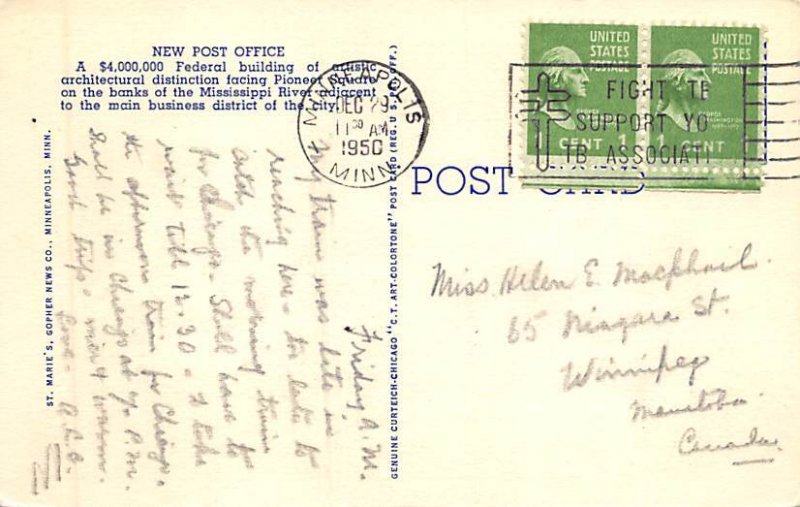 NEW POST OFFICE
A $4,000,000 Federal building of artistic
architectural distinction facing Pioneer Square
on the banks of the Mississippi River adjacent
to the main business district of the city.
MINNEAPOLIS
DEC 29
11 30 AM
1950
MINN.
UNITED
STATES
POSTAGE
GEORGE
WASHINGTON
1 CENT
UNITED
STATES
POSTAGE
GEORGE
WASHINGTON
1 CENT
FIGHT TB
SUPPORT YO
TB ASSOCIATI
POST CARD
ST. MARIE'S, GOPHER NEWS CO., MINNEAPOLIS, MINN.
GENUINE CURTEICH-CHICAGO "C. T. ART-COLORTONE" POST CARD (REG. U. S. PAT. OFF.)
Friday, A.M.
My train was late in
reaching here - too late to
catch the morning train
for Chicago. Shall have to
wait till 12.30 - I take
the afternoon train for Chicago.
Shall be in Chicago at 7 P.M.
Good trip - nice & warm.
Love - A.E.O.
Miss Helen E. Macphail.
65 Niagara St.
Winnipeg
Manitoba
Canada